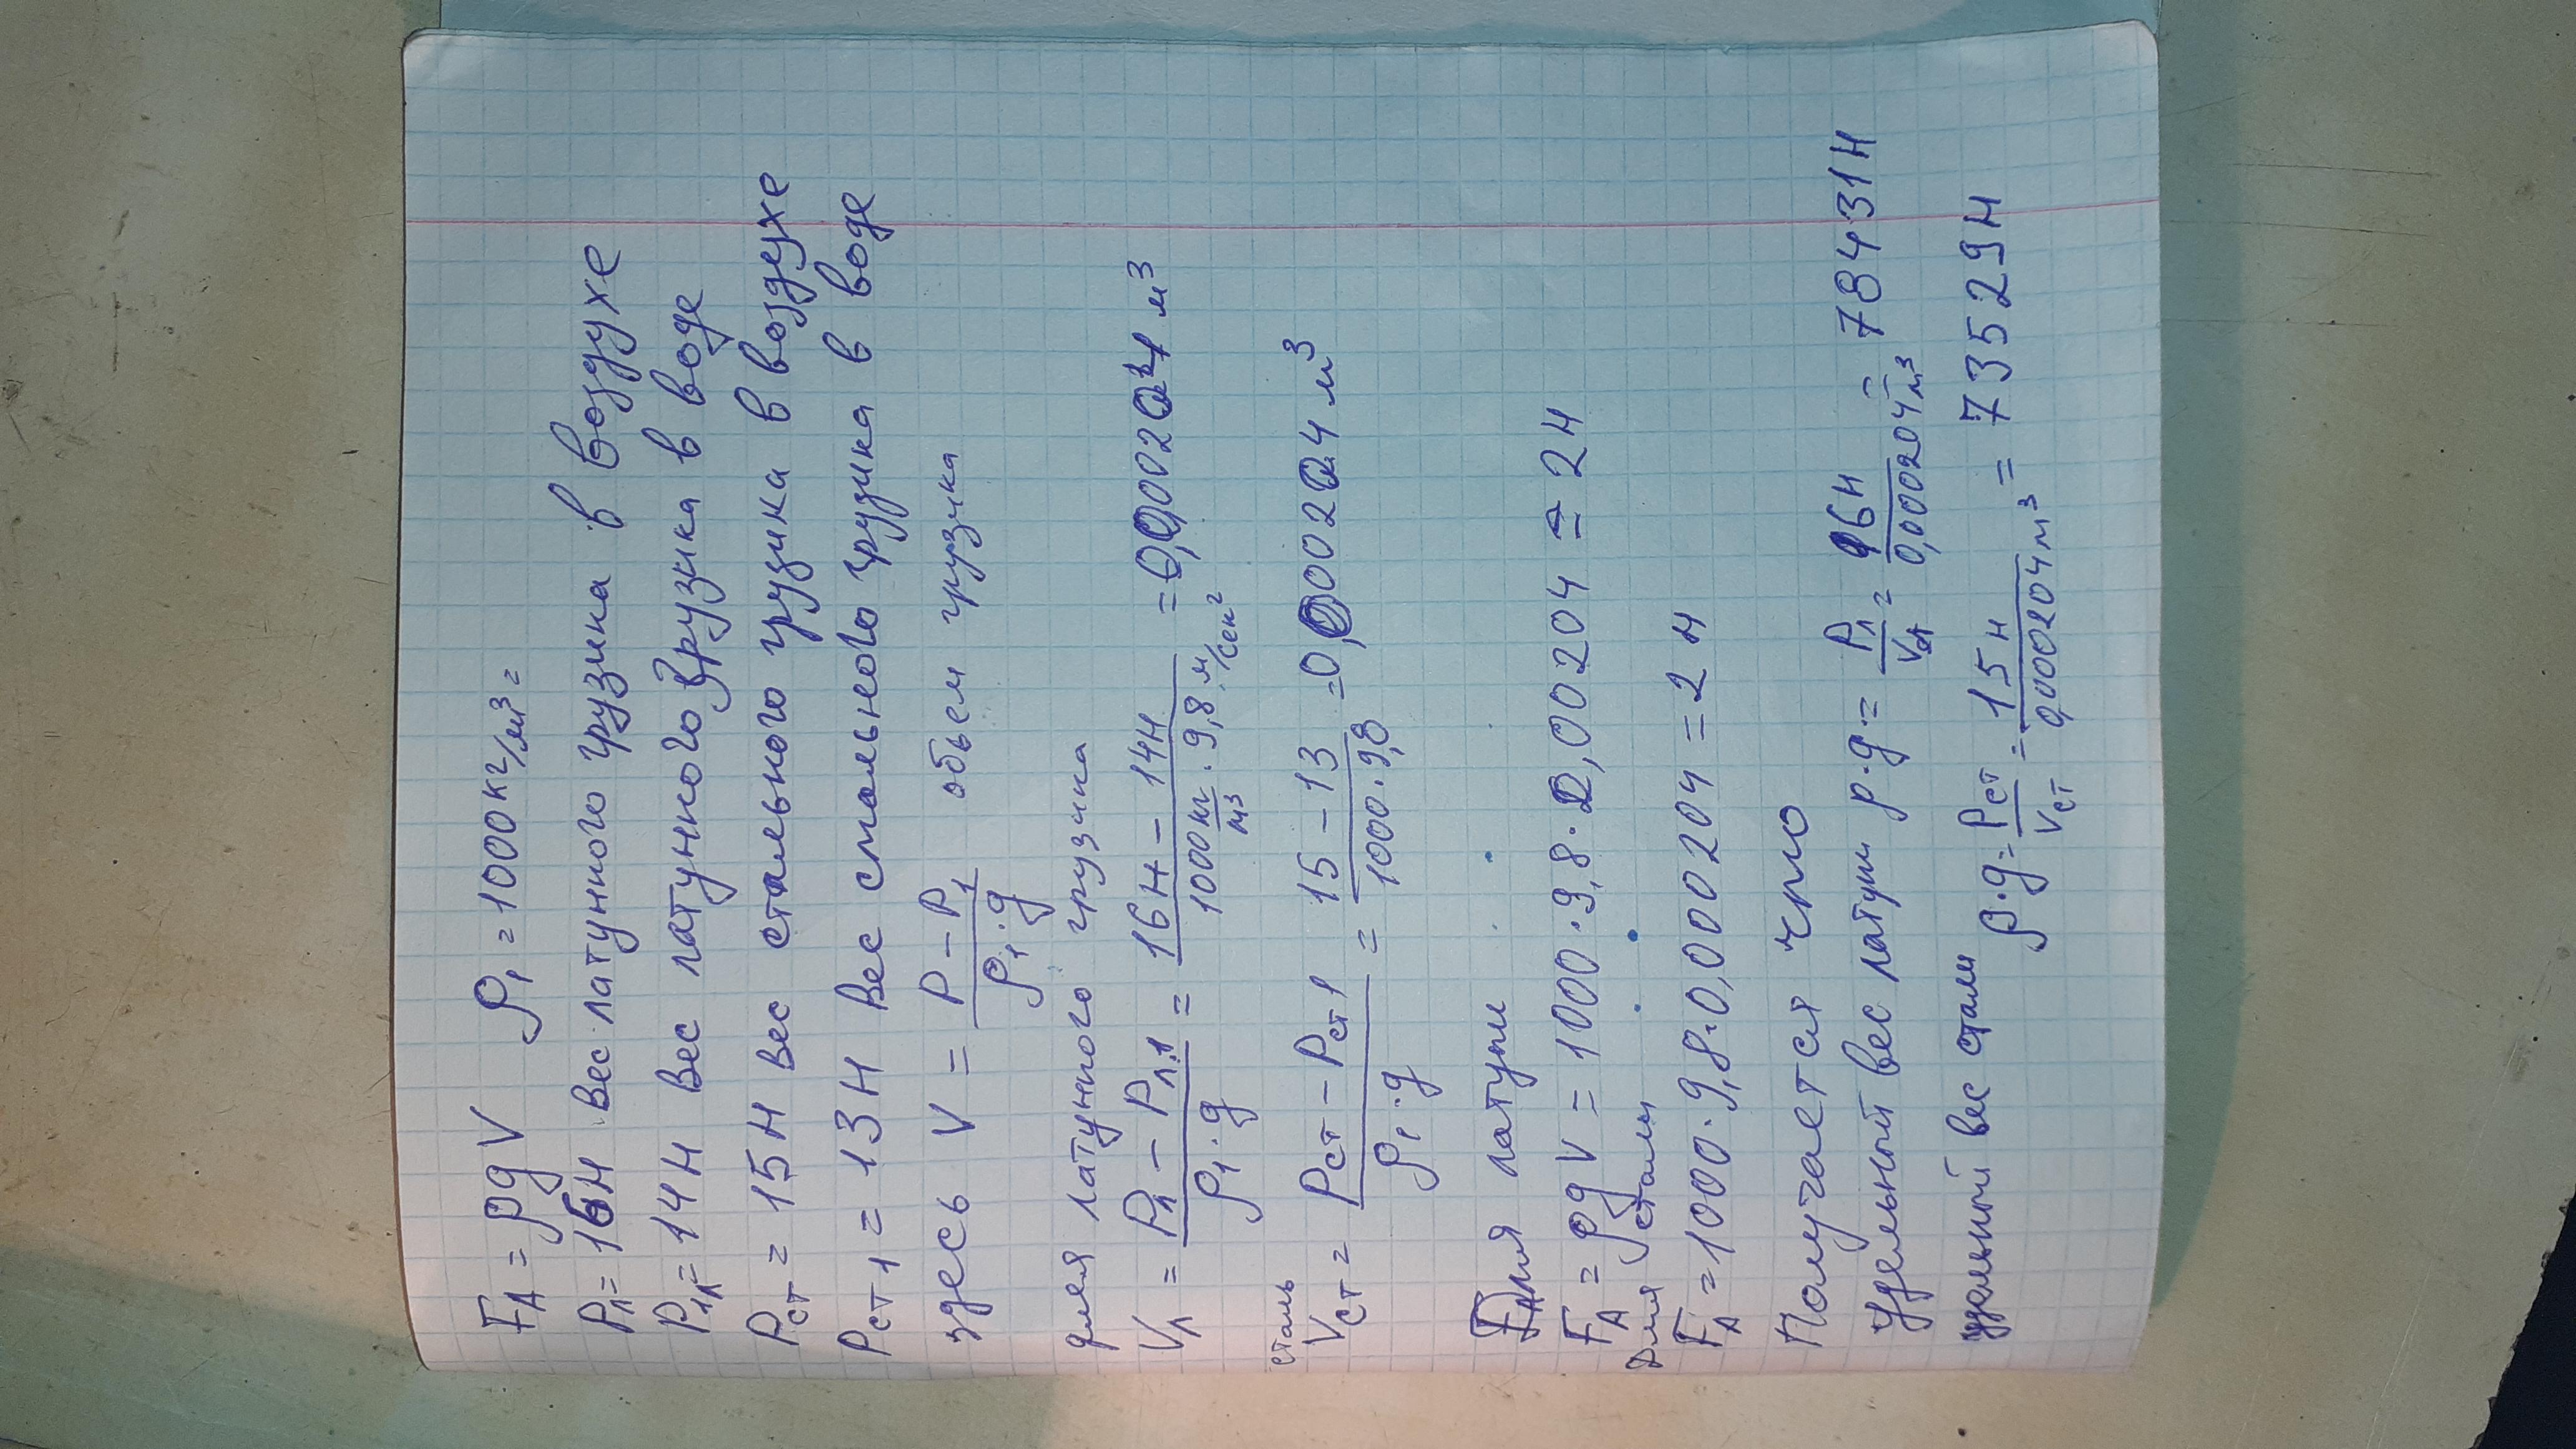 F_A = ρgV ρ₁ = 1000 кг/м³ =
P_л = 16Н Вес латунного грузика в воздухе
P_1л = 14Н Вес латунного грузика в воде
P_ст = 15Н Вес стального грузика в воздеухе
P_ст1 = 13Н Вес стального грузика в воде
здесь V = (P - P₁)/(ρ₁·g) объем грузика
для латунного грузика
V_л = (P_л - P_л1)/(ρ₁·g) = (16Н - 14Н)/(1000 кг/м³ · 9,8 м/сек²) = 0,000204 м³
сталь
V_ст = (P_ст - P_ст1)/(ρ₁·g) = (15 - 13)/(1000·9,8) = 0,000204 м³
Для латуни
F_A = ρgV = 1000·9,8·0,00204 = 2Н
Для стали
F_A = 1000·9,8·0,000204 = 2Н
Получается что
Удельный вес латуни ρ·g = P_л/V_л = 16Н/0,000204м³ = 78431Н
удельный вес стали ρ·g = P_ст/V_ст = 15Н/0,000204м³ = 73529Н